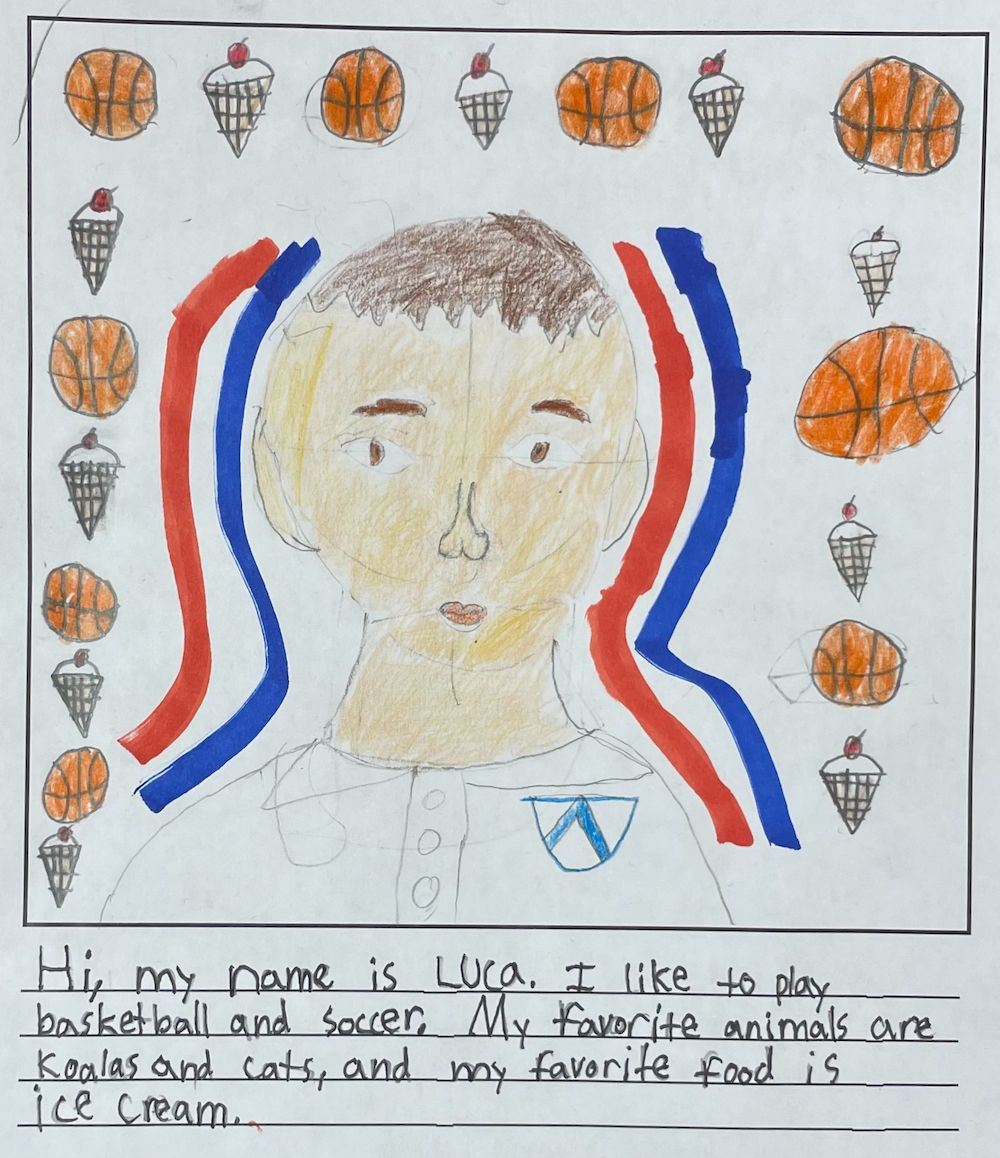 Hi, my name is Luca. I like to play
basketball and soccer. My favorite animals are
koalas and cats, and my favorite food is
ice cream.